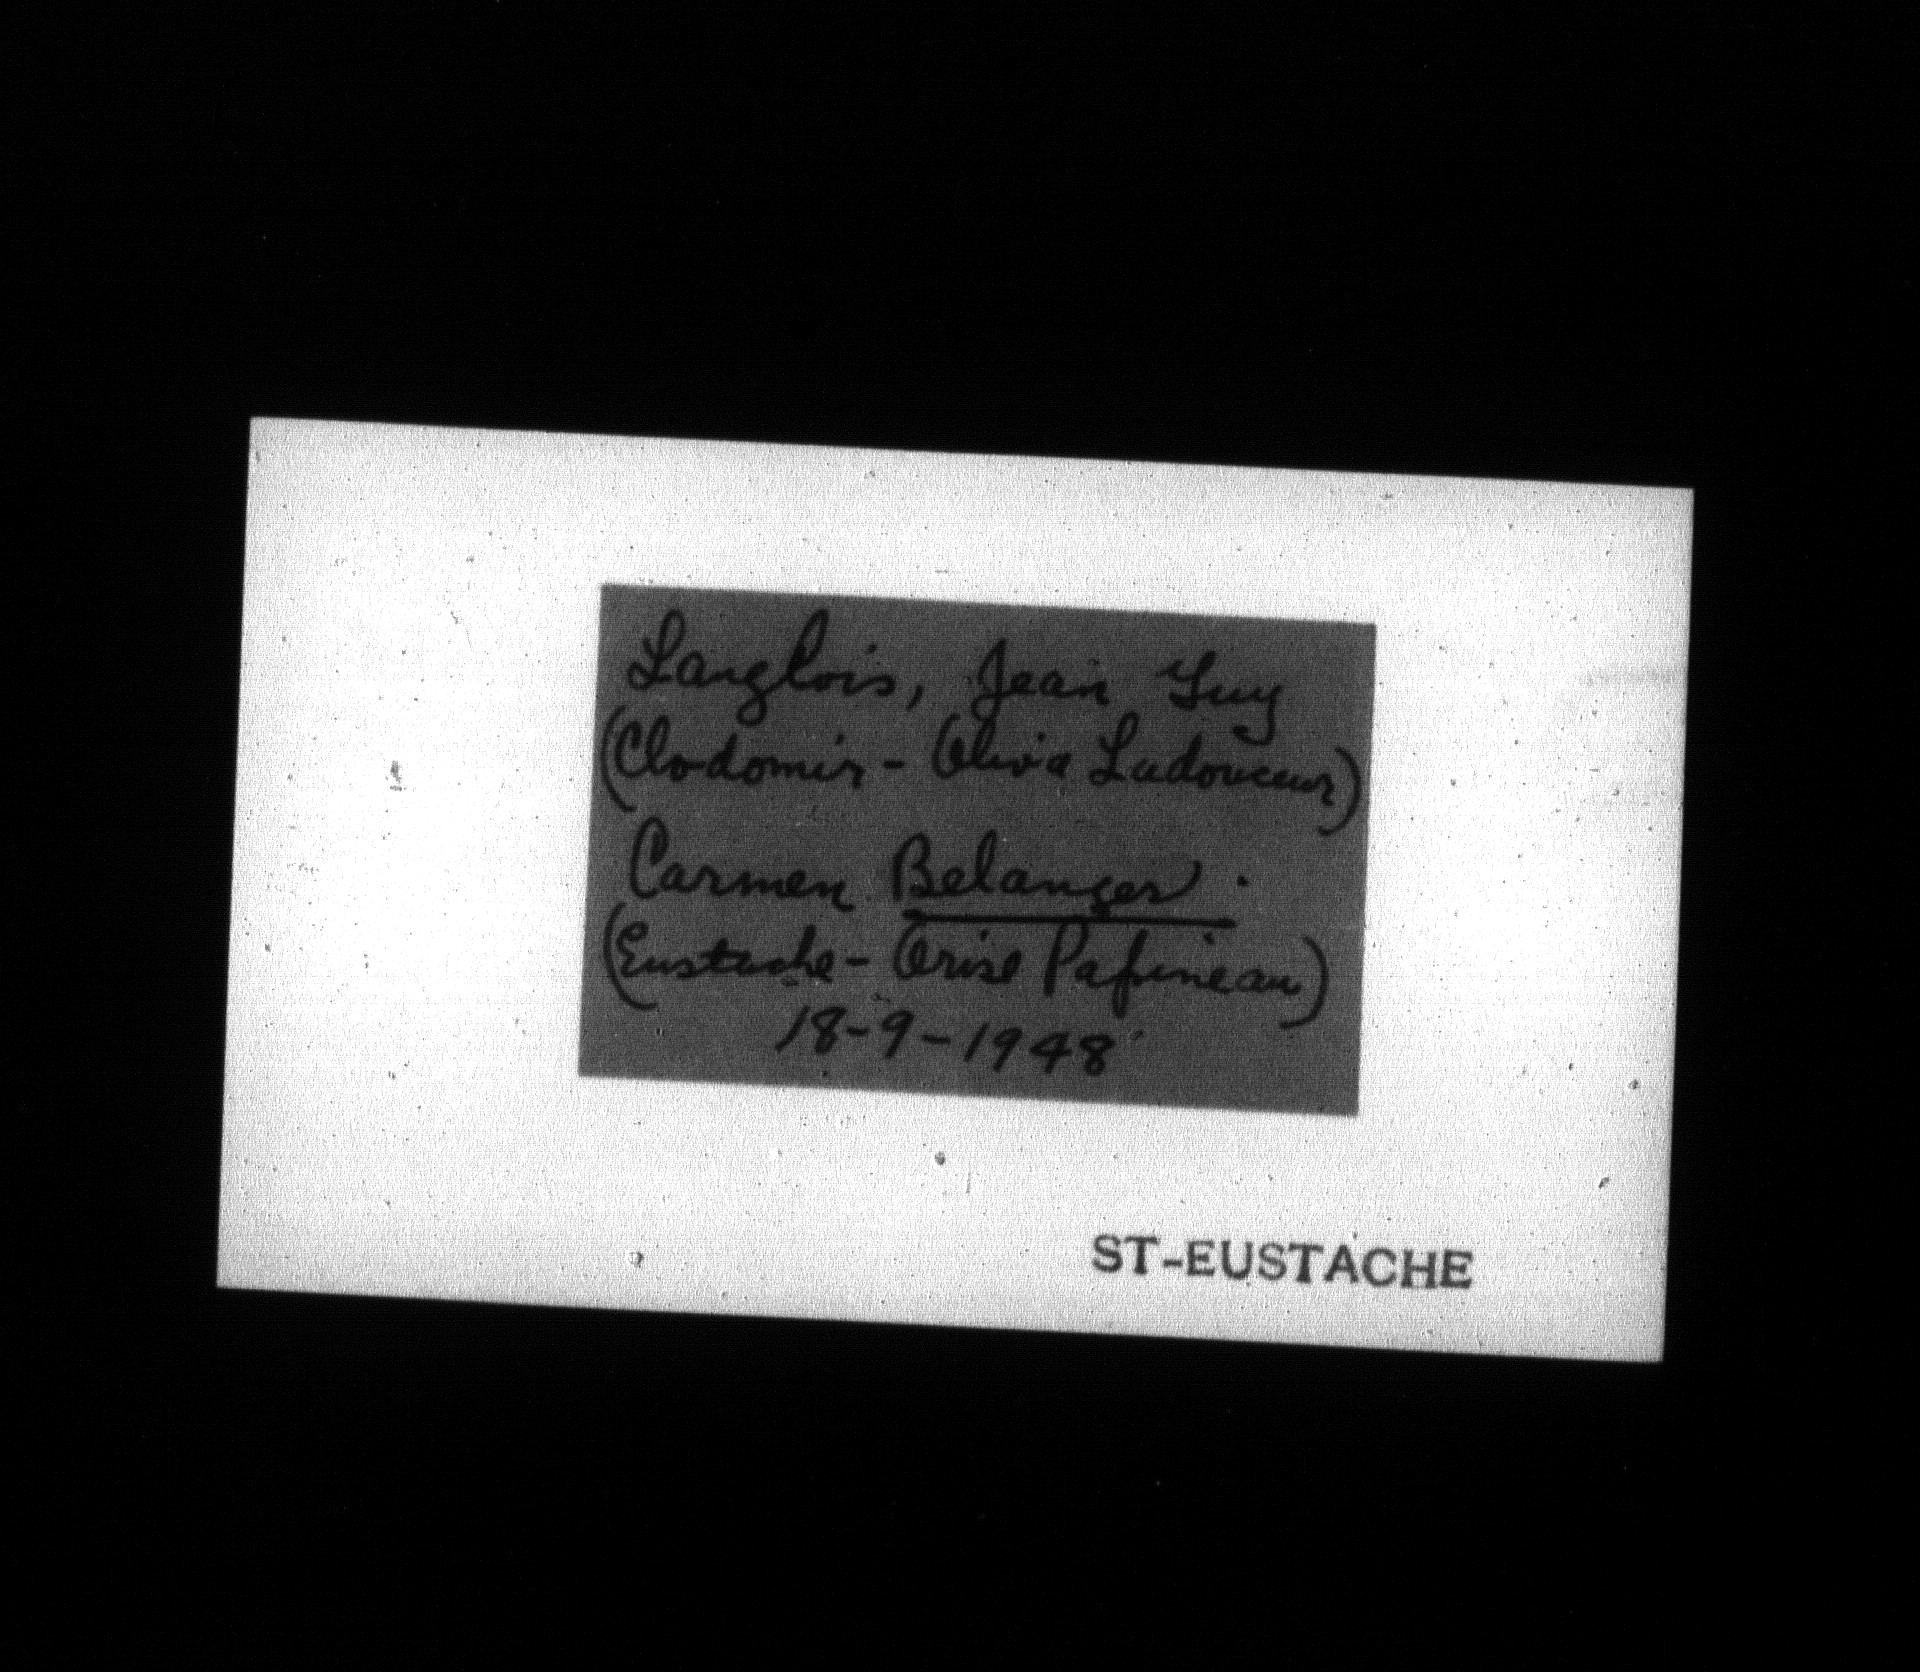 Langlois, Jean Guy
(Clodomir - Oliva Ladouceur)
Carmen Belanger.
(Eustache - Orise Papineau)
18-9-1948
ST-EUSTACHE